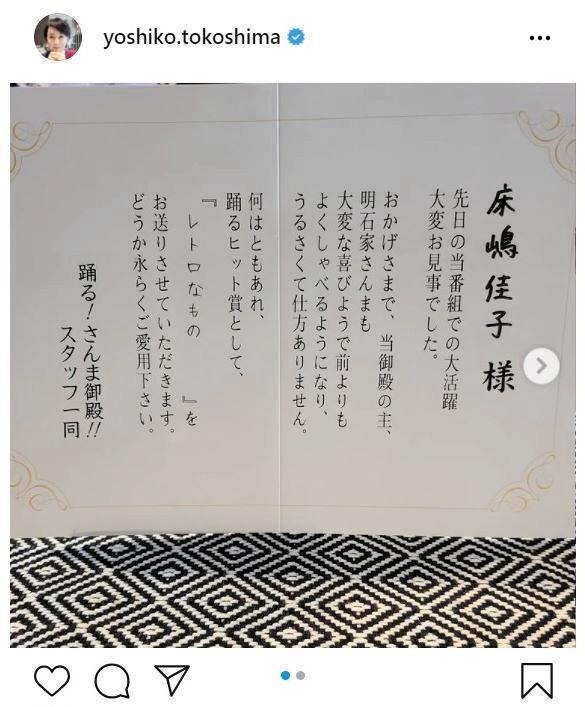 yoshiko.tokoshima
床嶋佳子様
先日の当番組での大活躍
大変お見事でした。
おかげさまで、当御殿の主、
明石家さんまも
大変な喜びようで前よりも
よくしゃべるようになり、
うるさくて仕方ありません。
何はともあれ、
踊るヒット賞として、
『レトロなもの』を
お送りさせていただきます。
どうか永らくご愛用下さい。
踊る!さんま御殿!!
スタッフ一同